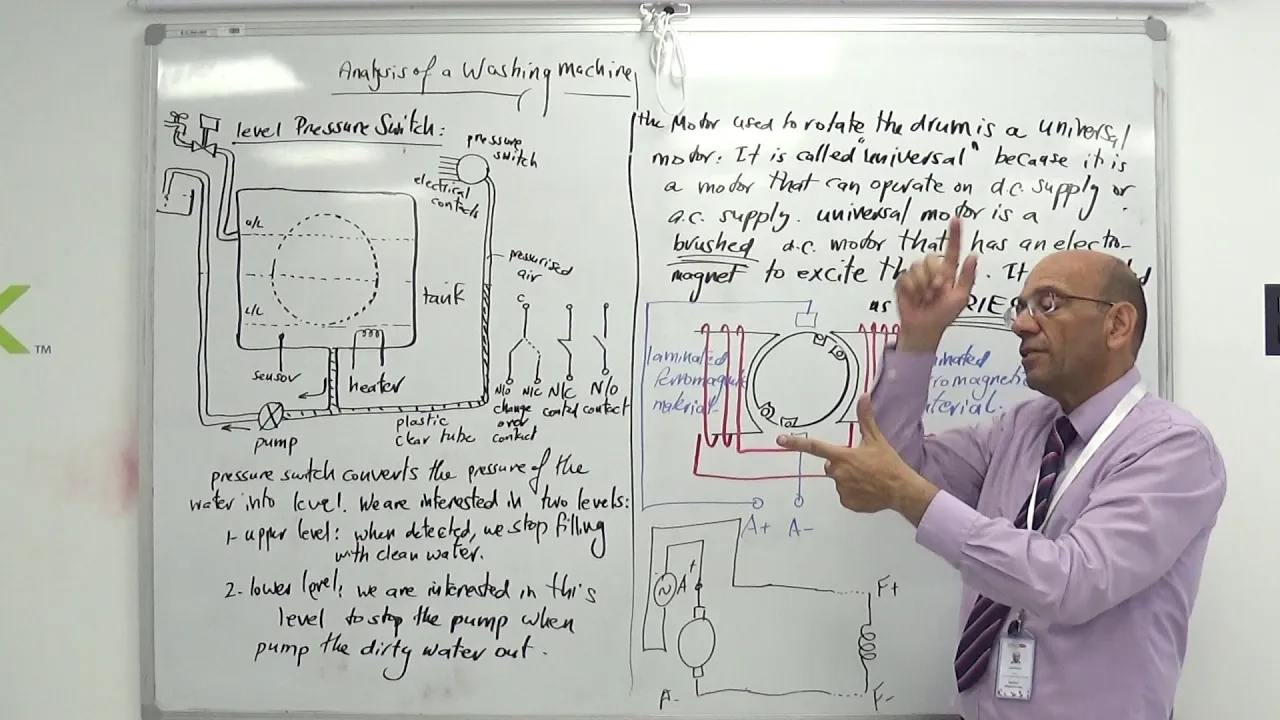 Analysis of a Washing Machine
level Pressure Switch:
pressure
switch
electrical
contacts
u/L
pressurised
air
tank
L/L
sensor
heater
pump
plastic
clear tube
C
N/O N/C N/C N/O
change
over
contact
contct contact
pressure switch converts the pressure of the
water into level. We are interested in two levels:
1- upper level: when detected, we stop filling
with clean water.
2- lower level: we are interested in this
level to stop the pump when
pump the dirty water out.
the Motor used to rotate the drum is a universal
motor. It is called "universal" because it is
a motor that can operate on d.c. supply or
a.c. supply. universal motor is a
brushed d.c. motor that has an electro-
magnet to excite the
It
as
laminated
ferromagnetic
material.
A+ A-
N
A+
F+
A-
F-
TM